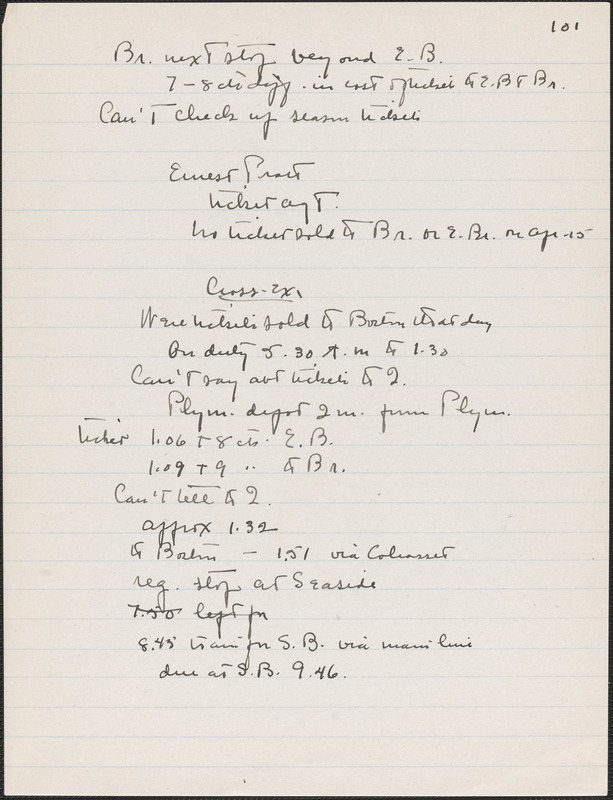 101
Br. next stop beyond E.B.
7-8 cts diff. in cost of ticket to E.B & Br.
Can't check up season tickets
Ernest Pratt
ticket agt.
No ticket sold to Br. or E. Br. on Apr-15
Cross-Ex,
Were tickets sold to Boston that day
On duty 5.30 A.m to 1.30
Can't say abt tickets to Q.
Plym. depot 2 m. from Plym.
ticket 1.06 + 8 cts. E.B.
1.09 + 9 " to Br.
Can't tell to Q.
approx 1.32
to Boston - 1.51 via Cohasset
reg. stop at Seaside
7.50 left for
8.45 train for S.B. via main line
due at S.B. 9.46.